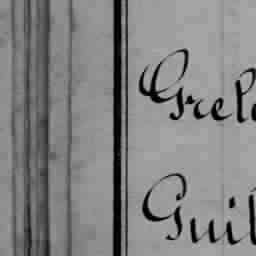 Grel
Guil